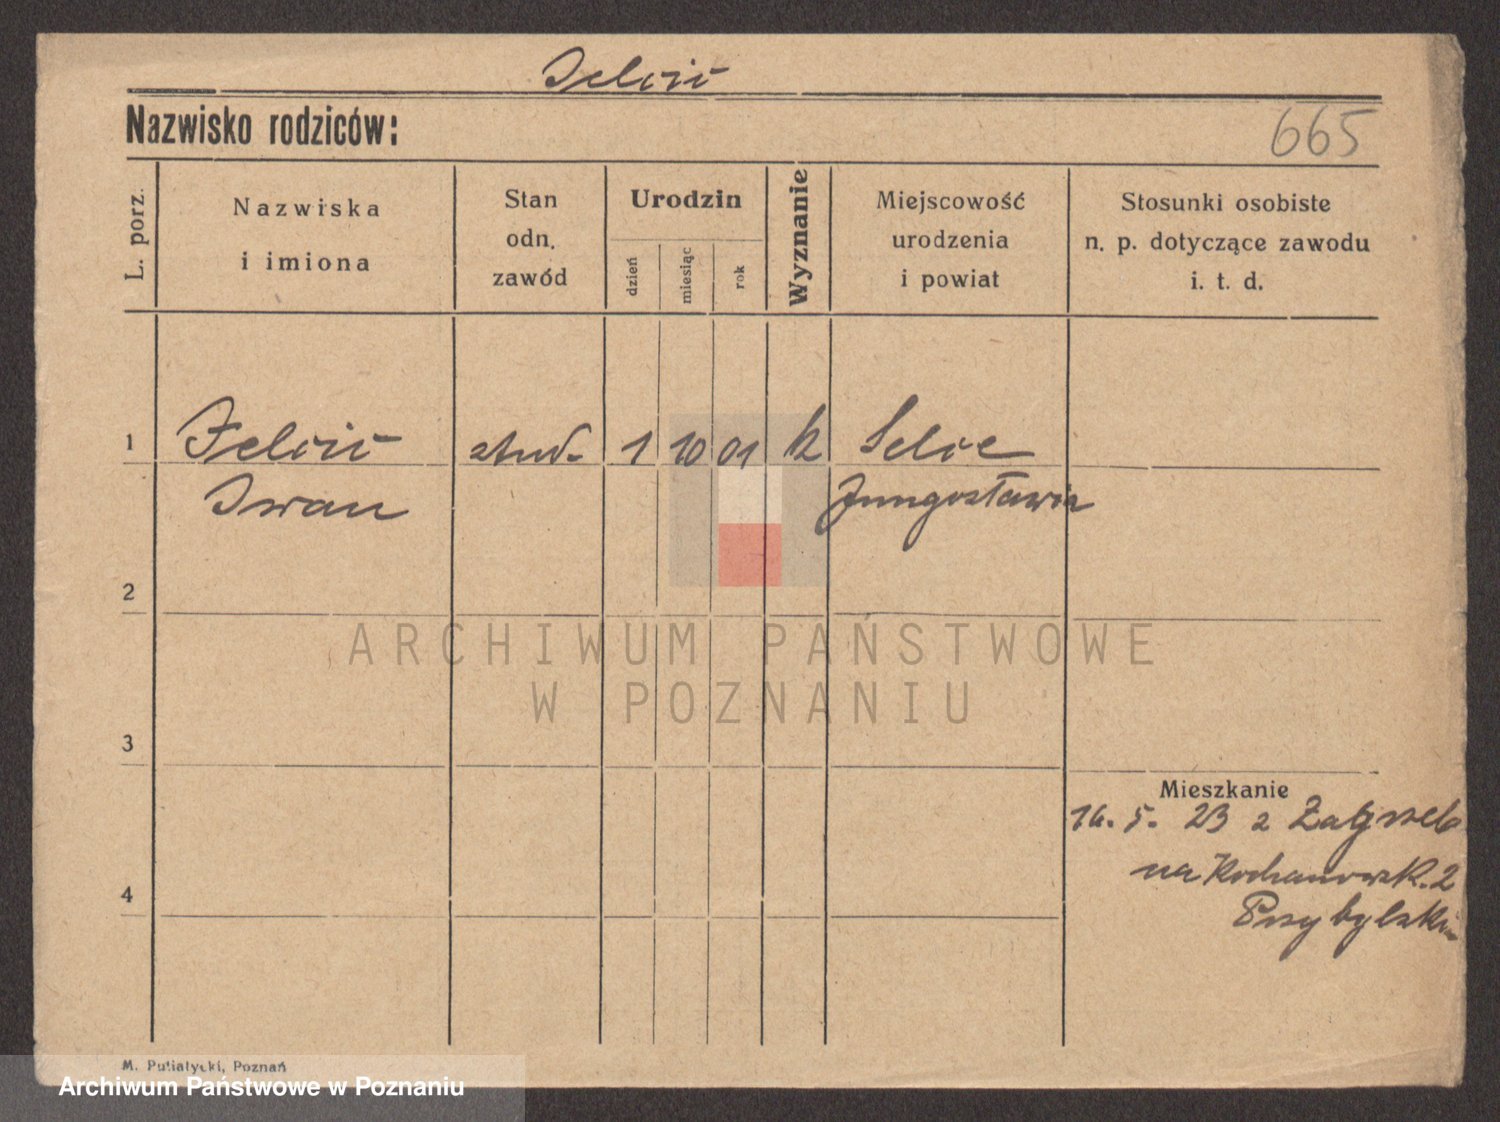 Jelcić
Nazwisko rodziców:
665
L. porz.
Nazwiska
i imiona
Stan
odn.
zawód
Urodzin
dzień
miesiąc
rok
Wyznanie
Miejscowość
urodzenia
i powiat
Stosunki osobiste
n. p. dotyczące zawodu
i. t. d.
1
Jelcić
stud.
1
10
01
k
Selce
Iwan
Jungosławia
2
ARCHIWUM PAŃSTWOWE
W POZNANIU
3
Mieszkanie
16. 5. 23 z Zagrzeb
na Kochanowsk. 2
4
Przybylski
M. Putiatycki, Poznań
Archiwum Państwowe w Poznaniu